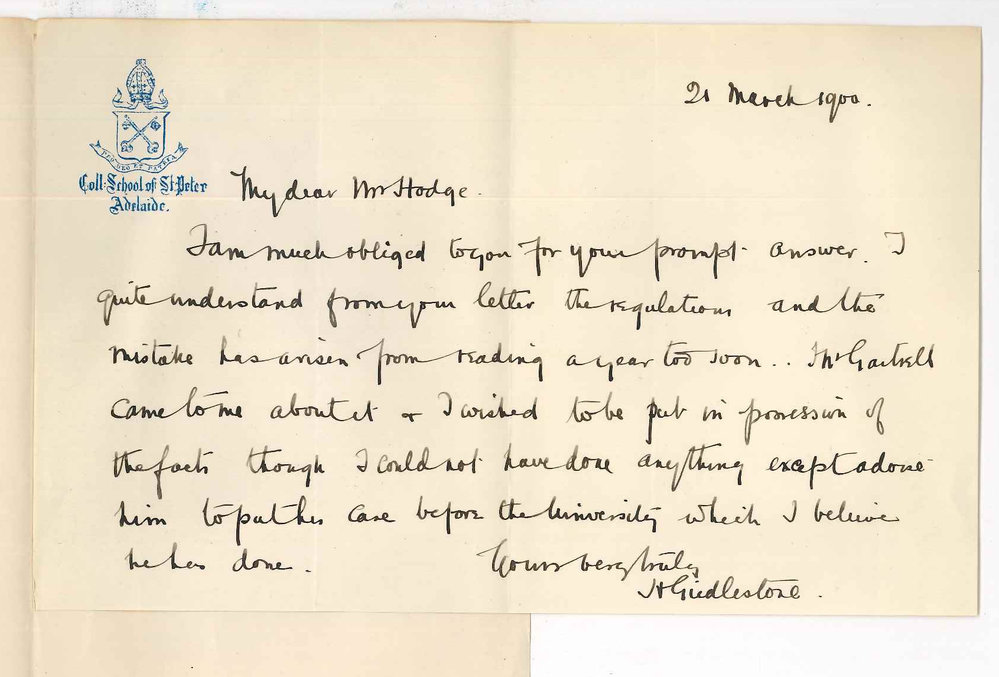 21 March 1900.
PRO DEO ET PATRIA
Coll: School of St. Peter
Adelaide.
My dear Mr Hodge.
I am much obliged to you for your prompt answer. I
quite understand from your letter the regulations and the
mistake has arisen from reading a year too soon.. Mr Gartrell
came to me about it & I wished to be put in possession of
the facts though I could not have done anything except advise
him to put his case before the University which I believe
he has done.
Yours very truly
H Girdlestone.